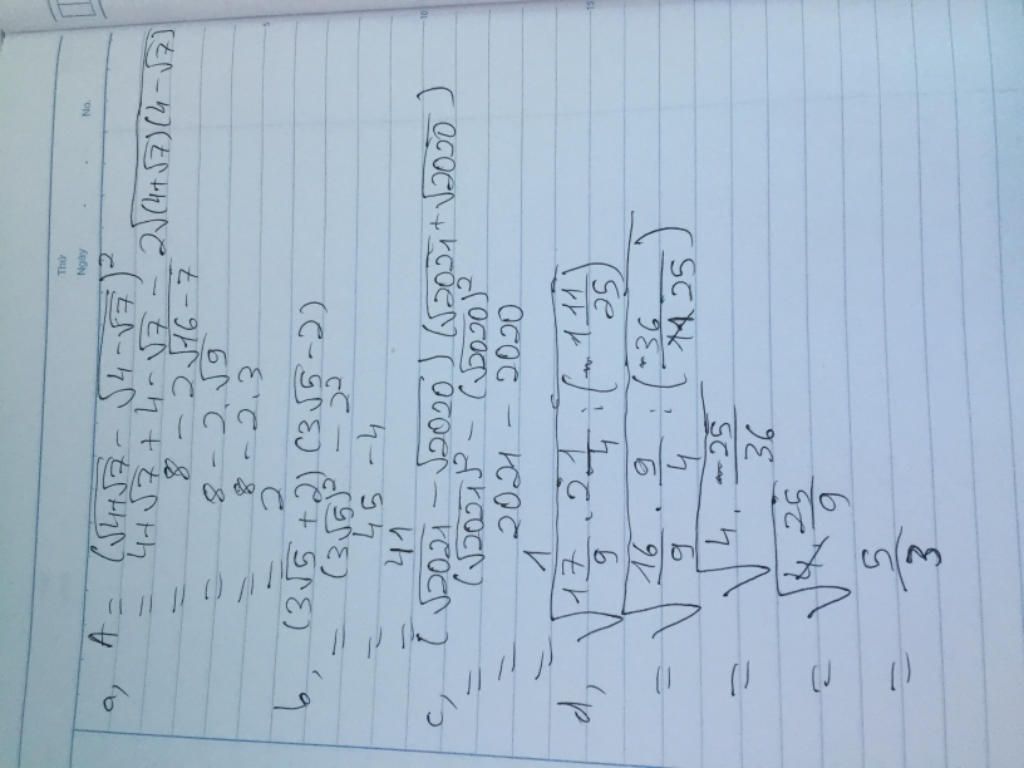 Thứ
Ngày
No.
a, A = (√4+√7 - √4-√7)²
= 4+√7 + 4-√7 - 2√(4+√7)(4-√7)
= 8 - 2√16-7
= 8 - 2.√9
= 8 - 2.3
= 2
b, (3√5 + 2)(3√5 - 2)
= (3√5)² - 2²
= 45 - 4
= 41
c, (√2021 - √2020)(√2021 + √2020)
= (√2021)² - (√2020)²
= 2021 - 2020
= 1
d, √1 7/9 . 2 1/4 : (- 1 11/25)
= √16/9 . 9/4 : (-36/25)
= √4 . -25/36
= √4. 25/9
= 5/3
5
10
15